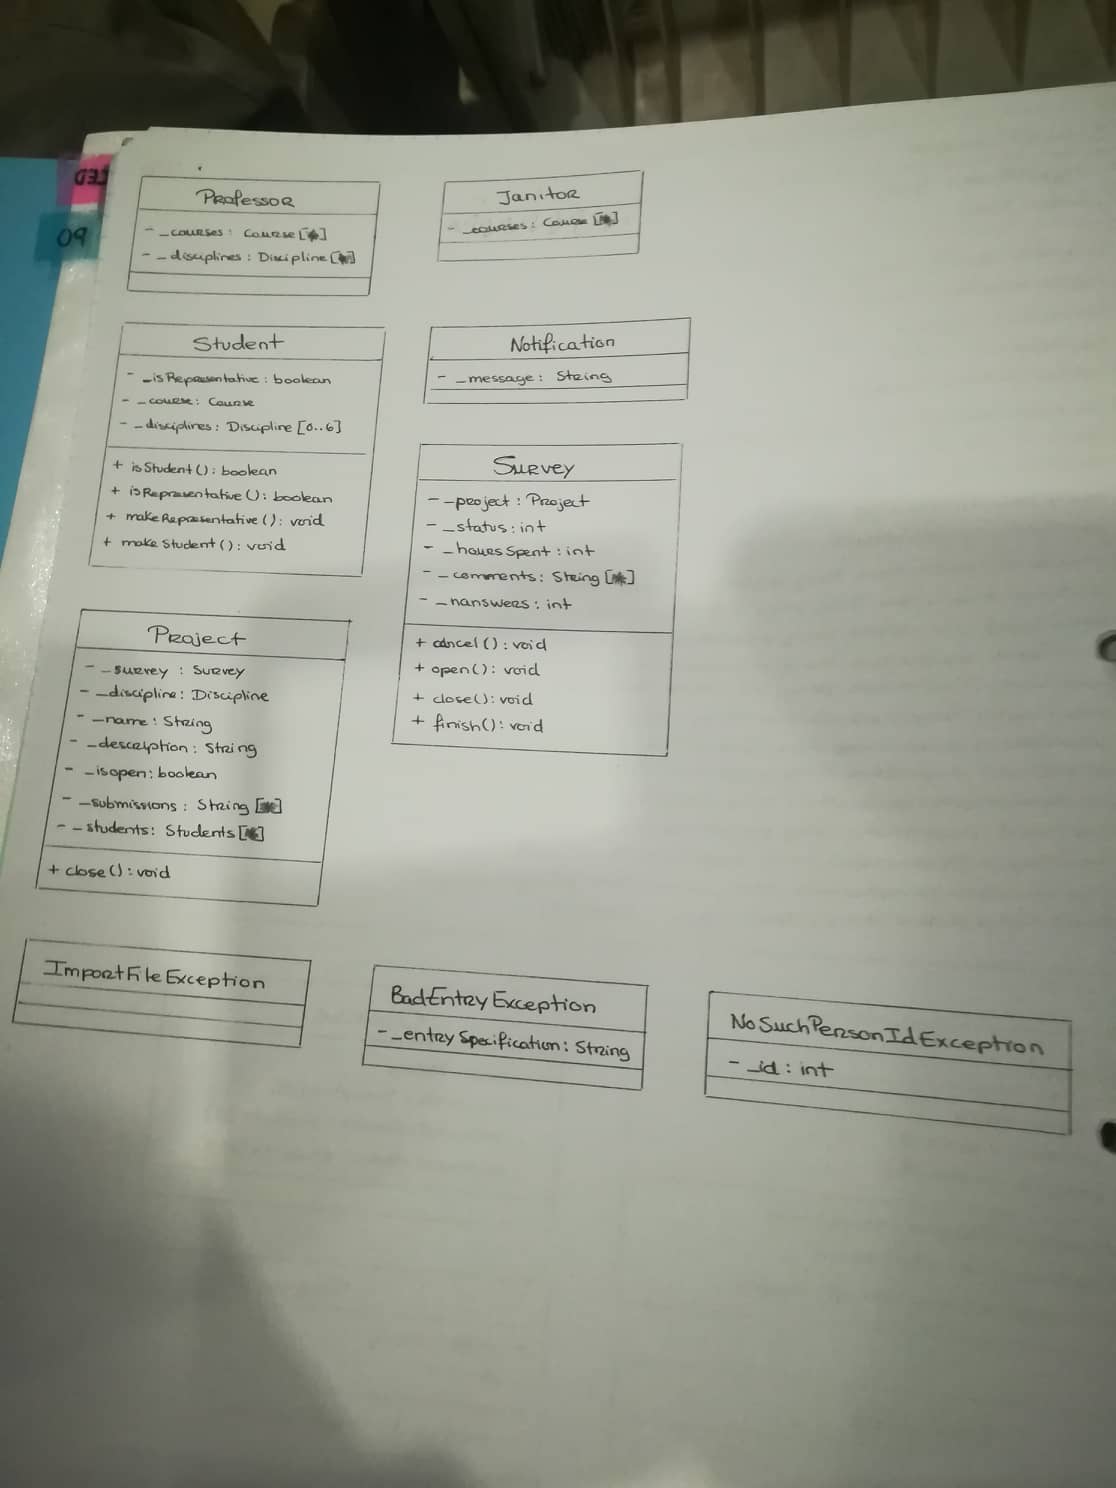 GED
09
Professor
- _courses : Course [*]
- _disciplines : Discipline [*]
Janitor
- _courses : Course [*]
Student
- _isRepresentative : boolean
- _course : Course
- _disciplines : Discipline [0..6]
+ isStudent () : boolean
+ isRepresentative () : boolean
+ makeRepresentative () : void
+ make Student () : void
Notification
- _message : String
Survey
- _project : Project
- _status : int
- _hoursSpent : int
- _comments : String [*]
- _nanswers : int
+ cancel () : void
+ open () : void
+ close () : void
+ finish () : void
Project
- _survey : Survey
- _discipline : Discipline
- _name : String
- _description : String
- _isopen : boolean
- _submissions : String [*]
- _students : Students [*]
+ close () : void
ImportFileException
BadEntryException
- _entrySpecification : String
NoSuchPersonIdException
- _id : int